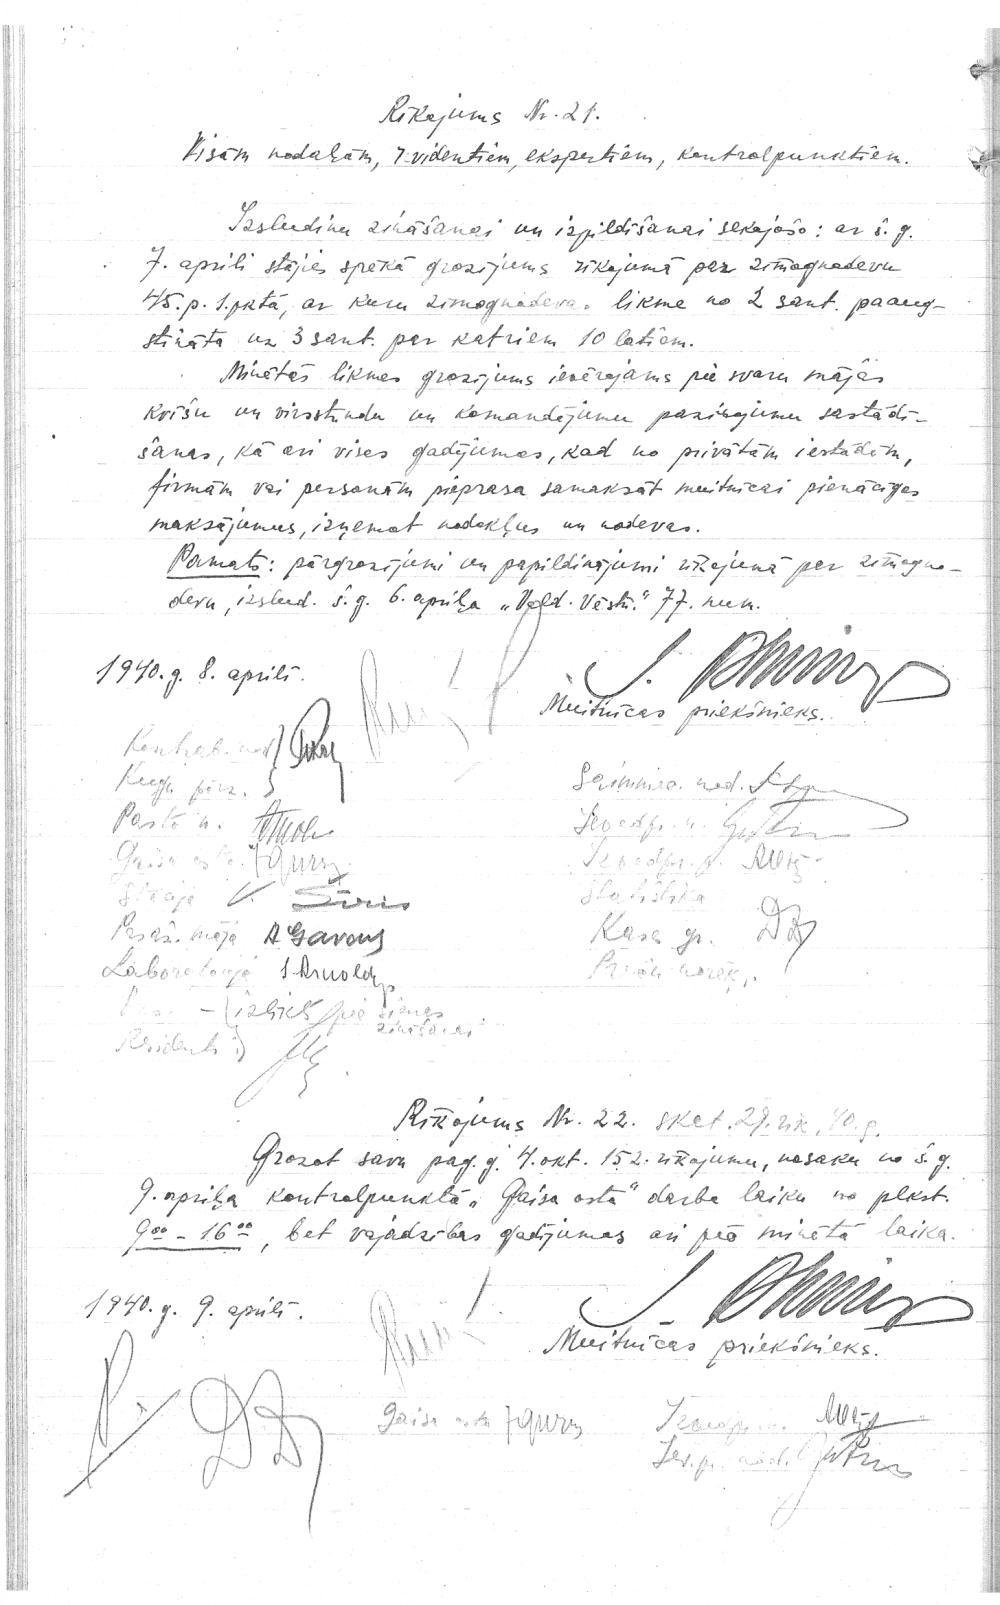 Rīkojums Nr. 21.
Visām nodaļām, rezidentiem, ekspertiem, kontrolpunktiem.
Izsludinu zināšanai un izpildīšanai sekojošo: ar š. g.
7. aprīli stājies spēkā grozījums rīkojumā par zīmognodevu
45. p. 1. pktā, ar kuru zīmognodevas likme no 2 sant. paaug-
stināta uz 3 sant. par katriem 10 latiem.
Minētās likmes grozījums ievērojams pie svaru mājas
kvīšu un virsstundu un komandējumu paziņojumu sastādī-
šanas, kā arī visos gadījumos, kad no privātām iestādēm,
firmām vai personām pieprasa samaksāt muitnīcai pienācīgos
maksājumus, izņemot nodokļus un nodevas.
Pamats: pārgrozījumi un papildinājumi rīkojumā par zīmogno-
devu, izslud. š. g. 6. aprīļa „Vald. Vēstn." 77. num.
1940. g. 8. aprīlī.
Muitnīcas priekšnieks.
Kontrab. nod.
Kuģu pārz.
Pasta n.
Gaisa osta
V.
Pasaž. māja A Gavars
Laboratorija J. Arnolds
izlikts pie sienas
zināšanai
Rezidents
Saimniec. nod.
Ievedpr. n.
Izvedpr. n.
Statistika
Kases gr.
Rīkojums Nr. 22. sket. 29. rīk. 40. g.
Grozot savu pag. g. 4. okt. 152. rīkojumu, nosaku no š. g.
9. aprīļa kontrolpunktā „Gaisa osta" darba laiku no plkst.
9⁰⁰ - 16⁰⁰, bet vajadzības gadījumos arī pēc minētā laika.
1940. g. 9. aprīlī.
Muitnīcas priekšnieks.
Gaisa osta
Izvedpr. n.
Iev. p. nod.